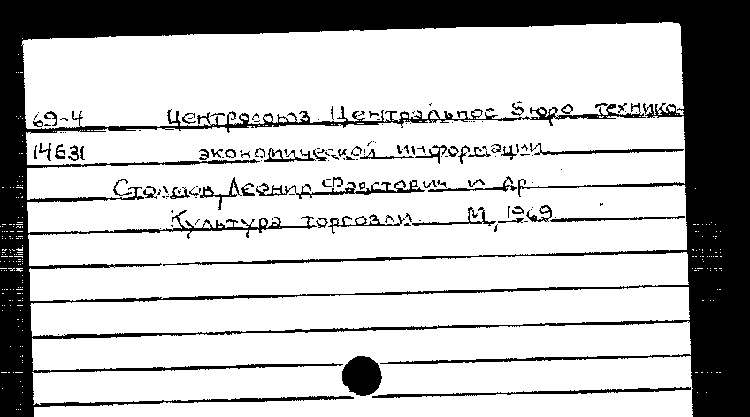 69-4 Центросоюз Центральное бюро технико-
14631 экономической информации
Столмов, Леонид Фавстович и др.
Культура торговли. М., 1969